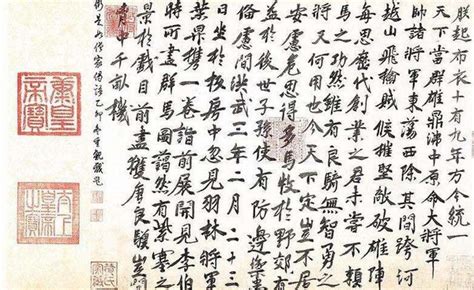 朕起布衣十有九年方今統一
天下當群雄鼎沸中原命大將軍
帥諸將軍東蕩西除其間跨河
越山飛擒賊候摧堅敵破雄陣
每思歷代創業之君未嘗不頼
馬之功然雖有良騎無智勇之
將又何用也今天下定豈不居
安慮危思得多馬牧於野郊有
益於後世子孫使有防邊禦患
備慮間洪武三年二月二十三
日坐於板房中忽見羽林將軍
葉昇攜一卷詣前展開見李伯
時所畫群馬圖藹然有紫塞之
景於戲目前盡獲唐良驥豈問
胷中千畝機